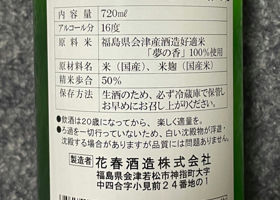 内容量 720㎖
アルコール分 16度
原料米 福島県会津産酒造好適米
「夢の香」100%使用
原材料名 米(国産)、米麹(国産米)
精米歩合 50%
保存方法 生酒のため、必ず冷蔵庫で保管し
お早めにお召し上がりください。
●飲酒は20歳になってから、楽しく適量を。
●ろ過を一切行っていないため、白い沈殿物が浮遊・
沈殿する場合がありますが品質には問題ありません。
製造者 花春酒造株式会社
福島県会津若松市神指町大字
中四合字小見前24番地の1